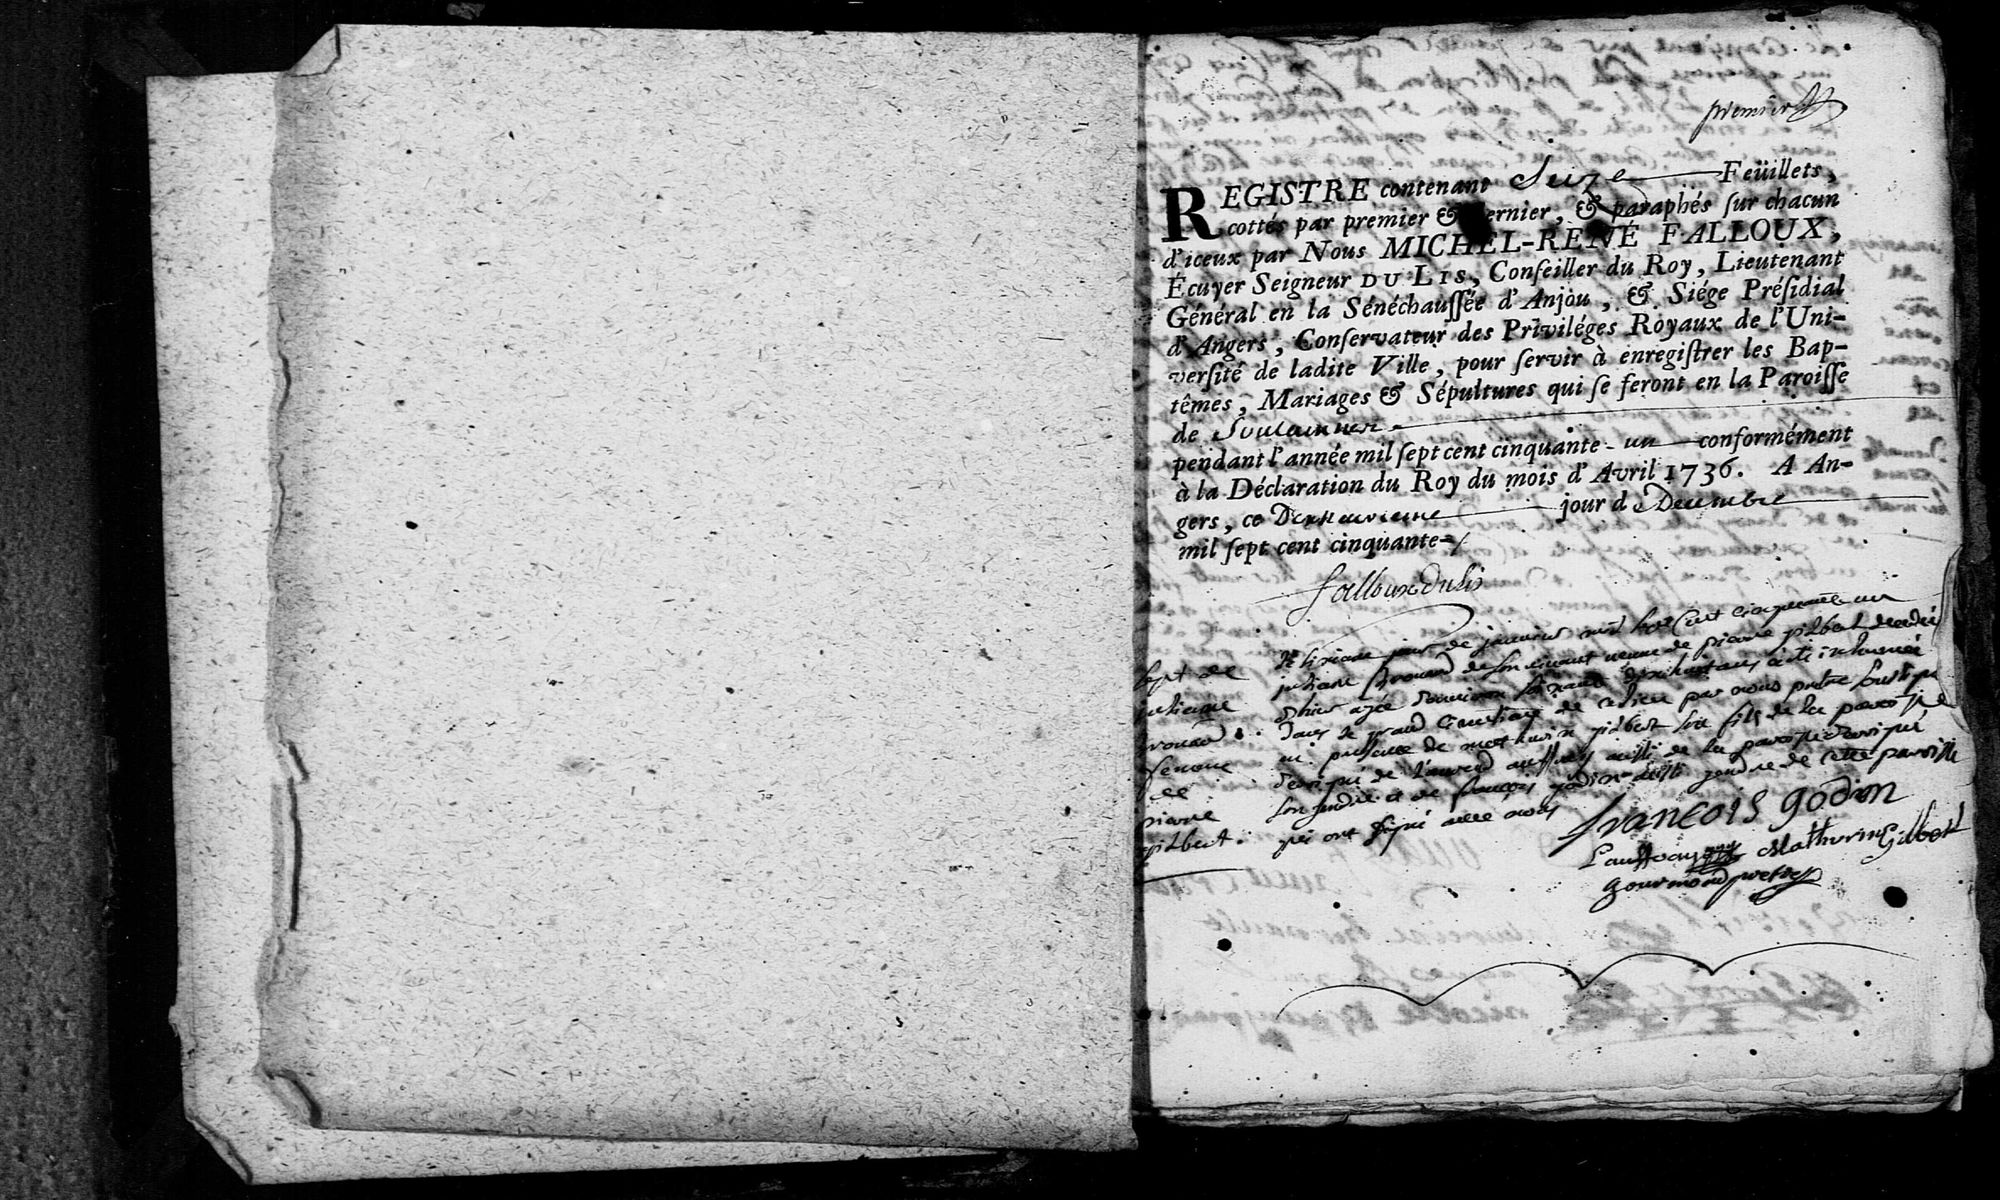 premier
REGISTRE contenant Seize Feüillets,
cottés par premier & dernier, & paraphés sur chacun
d'iceux par Nous MICHEL-RENÉ FALLOUX,
Écuyer Seigneur DU LIS, Conseiller du Roy, Lieutenant
Général en la Sénéchaussée d'Anjou, & Siége Présidial
d'Angers, Conservateur des Priviléges Royaux de l'Uni-
versité de ladite Ville, pour servir à enregistrer les Bap-
têmes, Mariages & Sépultures qui se feront en la Paroisse
de
pendant l'année mil sept cent cinquante-un conformément
à la Déclaration du Roy du mois d'Avril 1736. A An-
gers, ce Dixneuvieme jour d Decembre
mil sept cent cinquante-
fallouxdulis
Sept de
julienne
de
pierre
gilbert.
jour de janvier mil sept cent cinquante un
julienne de son vivant veuve de pierre gilbert
dans le grand cimetiere de ce lieu par nous prêtre
en presence de mathurin gilbert son fils de la paroisse
aussi de la paroisse
son gendre et de françois godin aussi gendre de cette paroisse
qui ont signé avec nous
françois godin
Mathurin Gilbert
gourmond prêtre